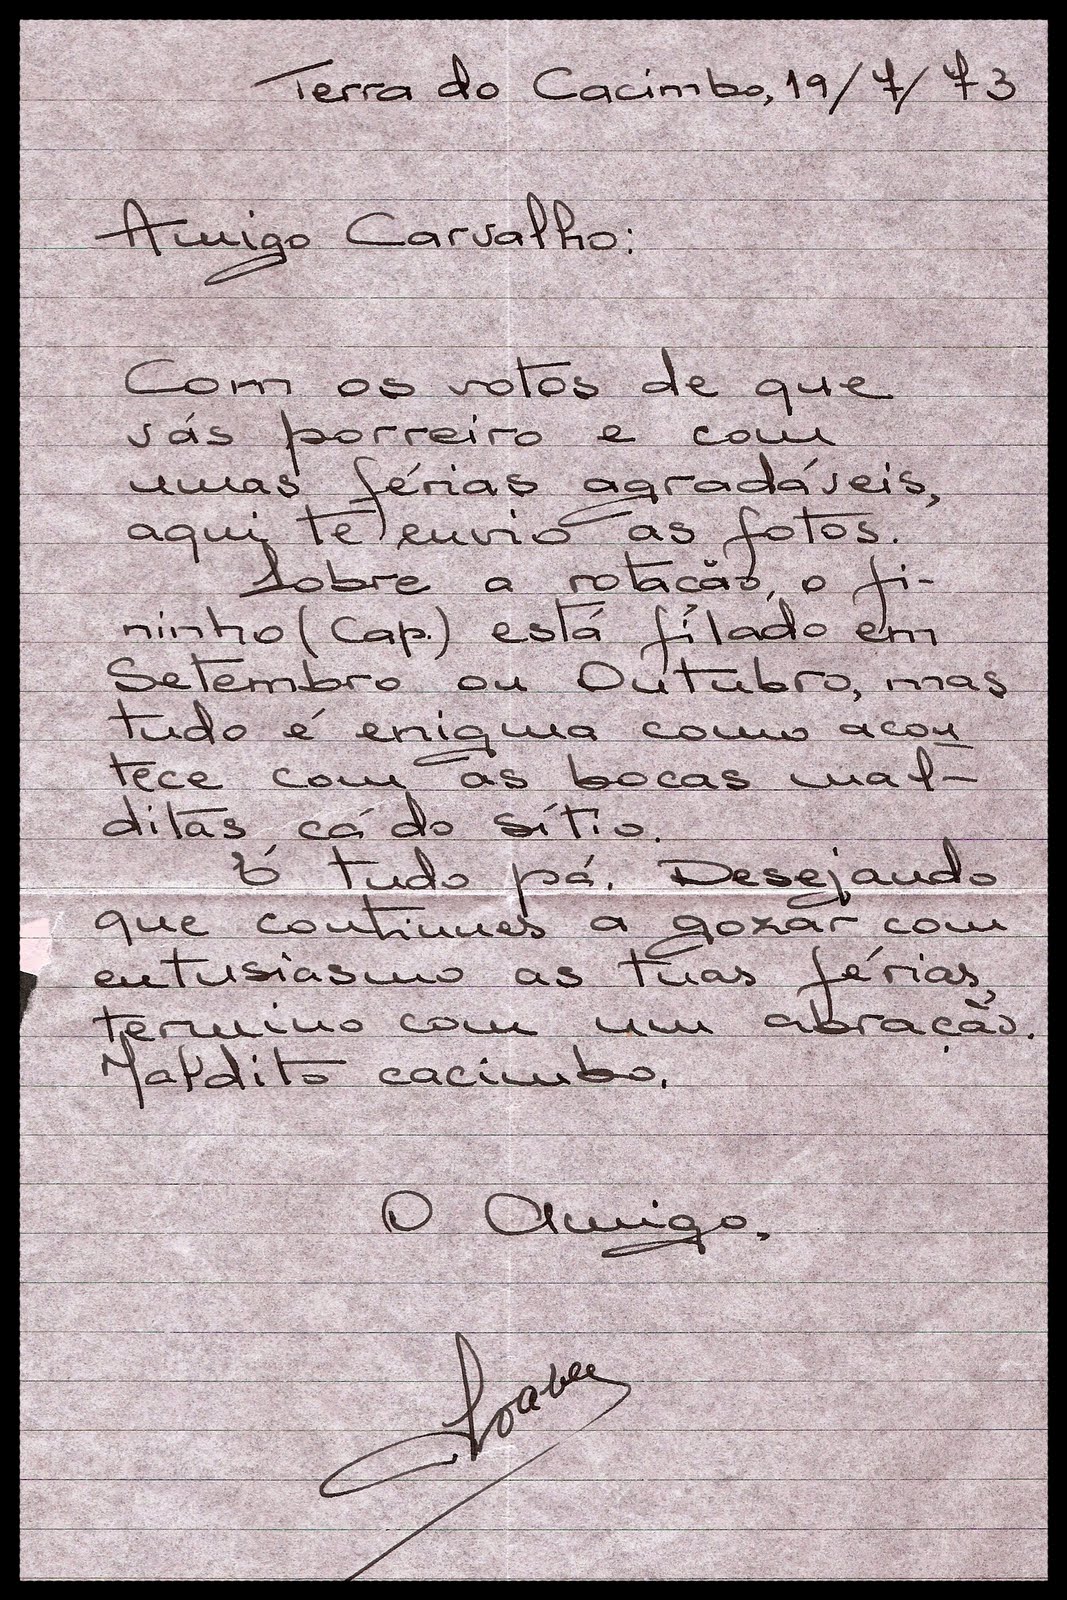 Terra do Cacimbo, 19/7/73
Amigo Carvalho:
Com os votos de que
vás porreiro e com
umas férias agradáveis,
aqui te envio as fotos.
Sobre a rotação, o fi-
ninho (Cap.) está filado em
Setembro ou Outubro, mas
tudo é enigma como acon
tece com as bocas mal-
ditas cá do sítio.
É tudo pá. Desejando
que continues a gozar com
entusiasmo as tuas férias,
termino com um abração.
Maldito cacimbo.
O Amigo,
Soares